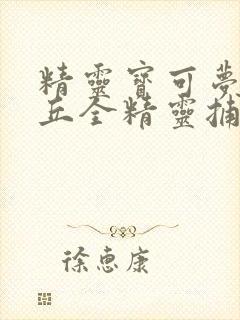 精靈寶可夢
丘全精靈捕
徐惠康